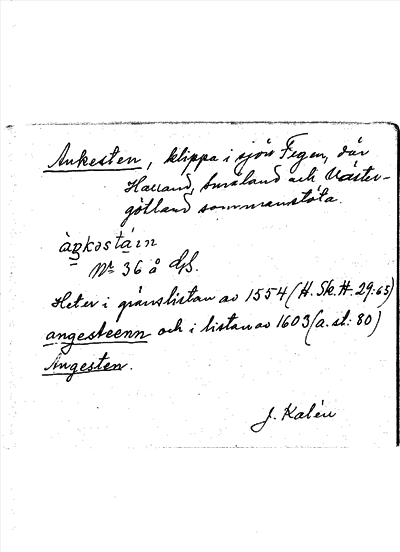 Ankesten, klippa i sjön Fegen, där
Halland, Småland och Väster-
götland sammanstöta.
àŋkəstàın
No 36 å
Heter i gränslistan av 1554 (H. Sk. H. 29:65)
angesteenn och i listan av 1603 (a. st: 80)
Angesten.
J. Kalén